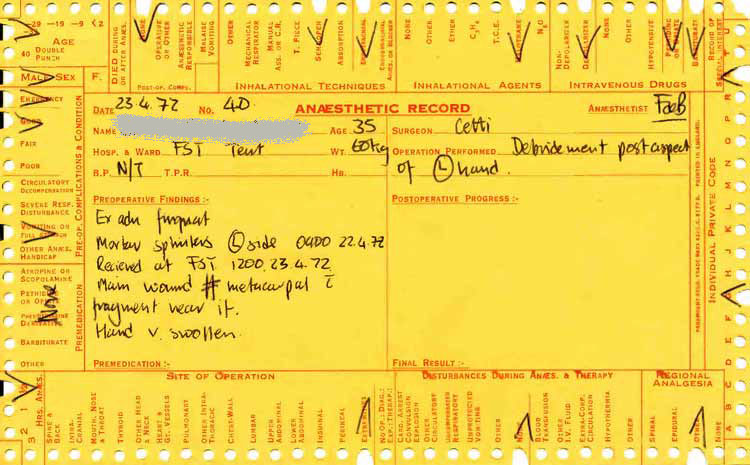 29 -19 -9 <2
AGE
40 DOUBLE PUNCH
MALE SEX F.
DIED DURING OR AFTER ANÆS.
NONE
OPERATIVE OR OTHER
ANÆSTHETIC RESPONSIBLE
MALAISE VOMITING
OTHER
POST-OP. COMPS.
MECHANICAL RESPIRATOR
MANUAL ASS. OR C.R.
T. PIECE
ABSORPTION
INHALATIONAL TECHNIQUES
NONE
OTHER
ETHER
C3H6
T.C.E.
N2O
INHALATIONAL AGENTS
NON-DEPOLARIZER
DEPOLARIZER
NONE
OTHER
HYPOTENSIVE
BARBITURATE
INTRAVENOUS DRUGS
RECORD OF SPECIAL INTEREST
EMERGENCY
GOOD
FAIR
POOR
CIRCULATORY DECOMPENSATION
SEVERE RESP. DISTURBANCE
VOMITING OR FULL STOMACH
OTHER ANÆS. HANDICAP
PRE-OP. COMPLICATIONS & CONDITION
ATROPINE OR SCOPOLAMINE
BARBITURATE
OTHER
None
PREMEDICATION
DATE 23.4.72 NO. 40 ANÆSTHETIC RECORD ANÆSTHETIST
NAME AGE 35 SURGEON Cetti
HOSP. & WARD FST Tent WT. 60kg OPERATION PERFORMED Debridement post aspect
B.P. N/T T.P.R. HB. of (L) hand.
PREOPERATIVE FINDINGS :- POSTOPERATIVE PROGRESS :-
Ex adu
Mortar splinters (L) side 0400 22.4.72
Recieved at FST 1200. 23.4.72
Main wound # metacarpal c̄
fragment near it.
Hand v. swollen.
PREMEDICATION :- FINAL RESULT :-
INDIVIDUAL PRIVATE CODE
SITE OF OPERATION
DISTURBANCES DURING ANÆS. & THERAPY
REGIONAL ANALGESIA
HRS. ANÆS.
SPINE & BACK
INTRA-CRANIAL
MOUTH, NOSE & THROAT
THYROID
OTHER HEAD & NECK
HEART & GT. VESSELS
PULMONARY
OTHER INTRA-THORACIC
CHEST-WALL
LUMBAR
UPPER ABDOMINAL
LOWER ABDOMINAL
INGUINAL
PERINEAL
EXTREMITIES
CARD. ARREST
CONVULSION
EXPLOSION
OTHER CIRCULATORY
UNSUPPRESSED RESPIRATORY
UNPROTECTED VOMITING
OTHER
NONE
BLOOD TRANSFUSION
OTHER I.V. FLUID
EXTRA-CORP. CIRCULATION
HYPOTHERMIA
OTHER
SPINAL
EPIDURAL
OTHER
NONE